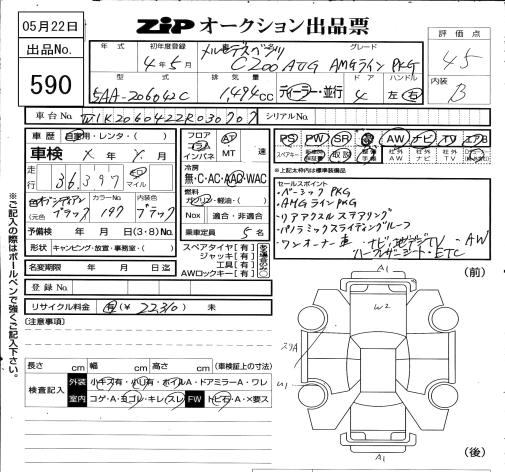 05月22日
ZiP オークション出品票
出品No.
590
年式
初年度登録
グレード
評価点
4年5月
メルセデスベンツ
C200 AVG AMGライン PKG
4.5
型式
排気量
ドア
ハンドル
内装
5AA-206042C
1,494cc
ディーラー・並行
4
左・右
B
車台No.
W1K2060422R030707
シリアルNo.
車歴
自家用・レンタ・( )
フロア
コラム
インパネ
AT
MT
速
PS
PW
SR
AW
ナビ
TV
エアB
車検
X年
X月
スペアキー
取説
社外AW
社外ナビ
社外TV
※上記太枠内は標準装備品
走行
36,397
km
マイル
冷房
無・C・AC・AAC・WAC
セールスポイント
・ベーシックPKG
・AMGラインPKG
・リアアクスルステアリング
・パノラミックスライディングルーフ
・ワンオーナー車・ナビ・地デジTV・AW
・レーダーシート・ETC
燃料
ガソリン・軽油・( )
色
(元色
ブラック
カラーNo.
197
内装色
ブラック
Nox
適合・非適合
予備検
年 月 日(3・8)No.
乗車定員
5名
形状
キャンピング・放置・事務室・( )
スペアタイヤ[有]
ジャッキ[有]
工具[有]
AWロックキー[有]
名変期限
年 月 日迄
登録No.
リサイクル料金
有(¥22310)
未
(注意事項)
(前)
A1
W2
スリA
U1
A1
(後)
長さ cm
幅 cm
高さ cm
(車検証上の寸法)
検査記入
外装
小キズ有・小U有・ホイルA・ドアミラーA・ワレ
室内
コゲ・A・ヨゴレ・キレ・スレ
FW
トビ石・A・×要ス
※ご記入の際はボールペンで強くご記入下さい。